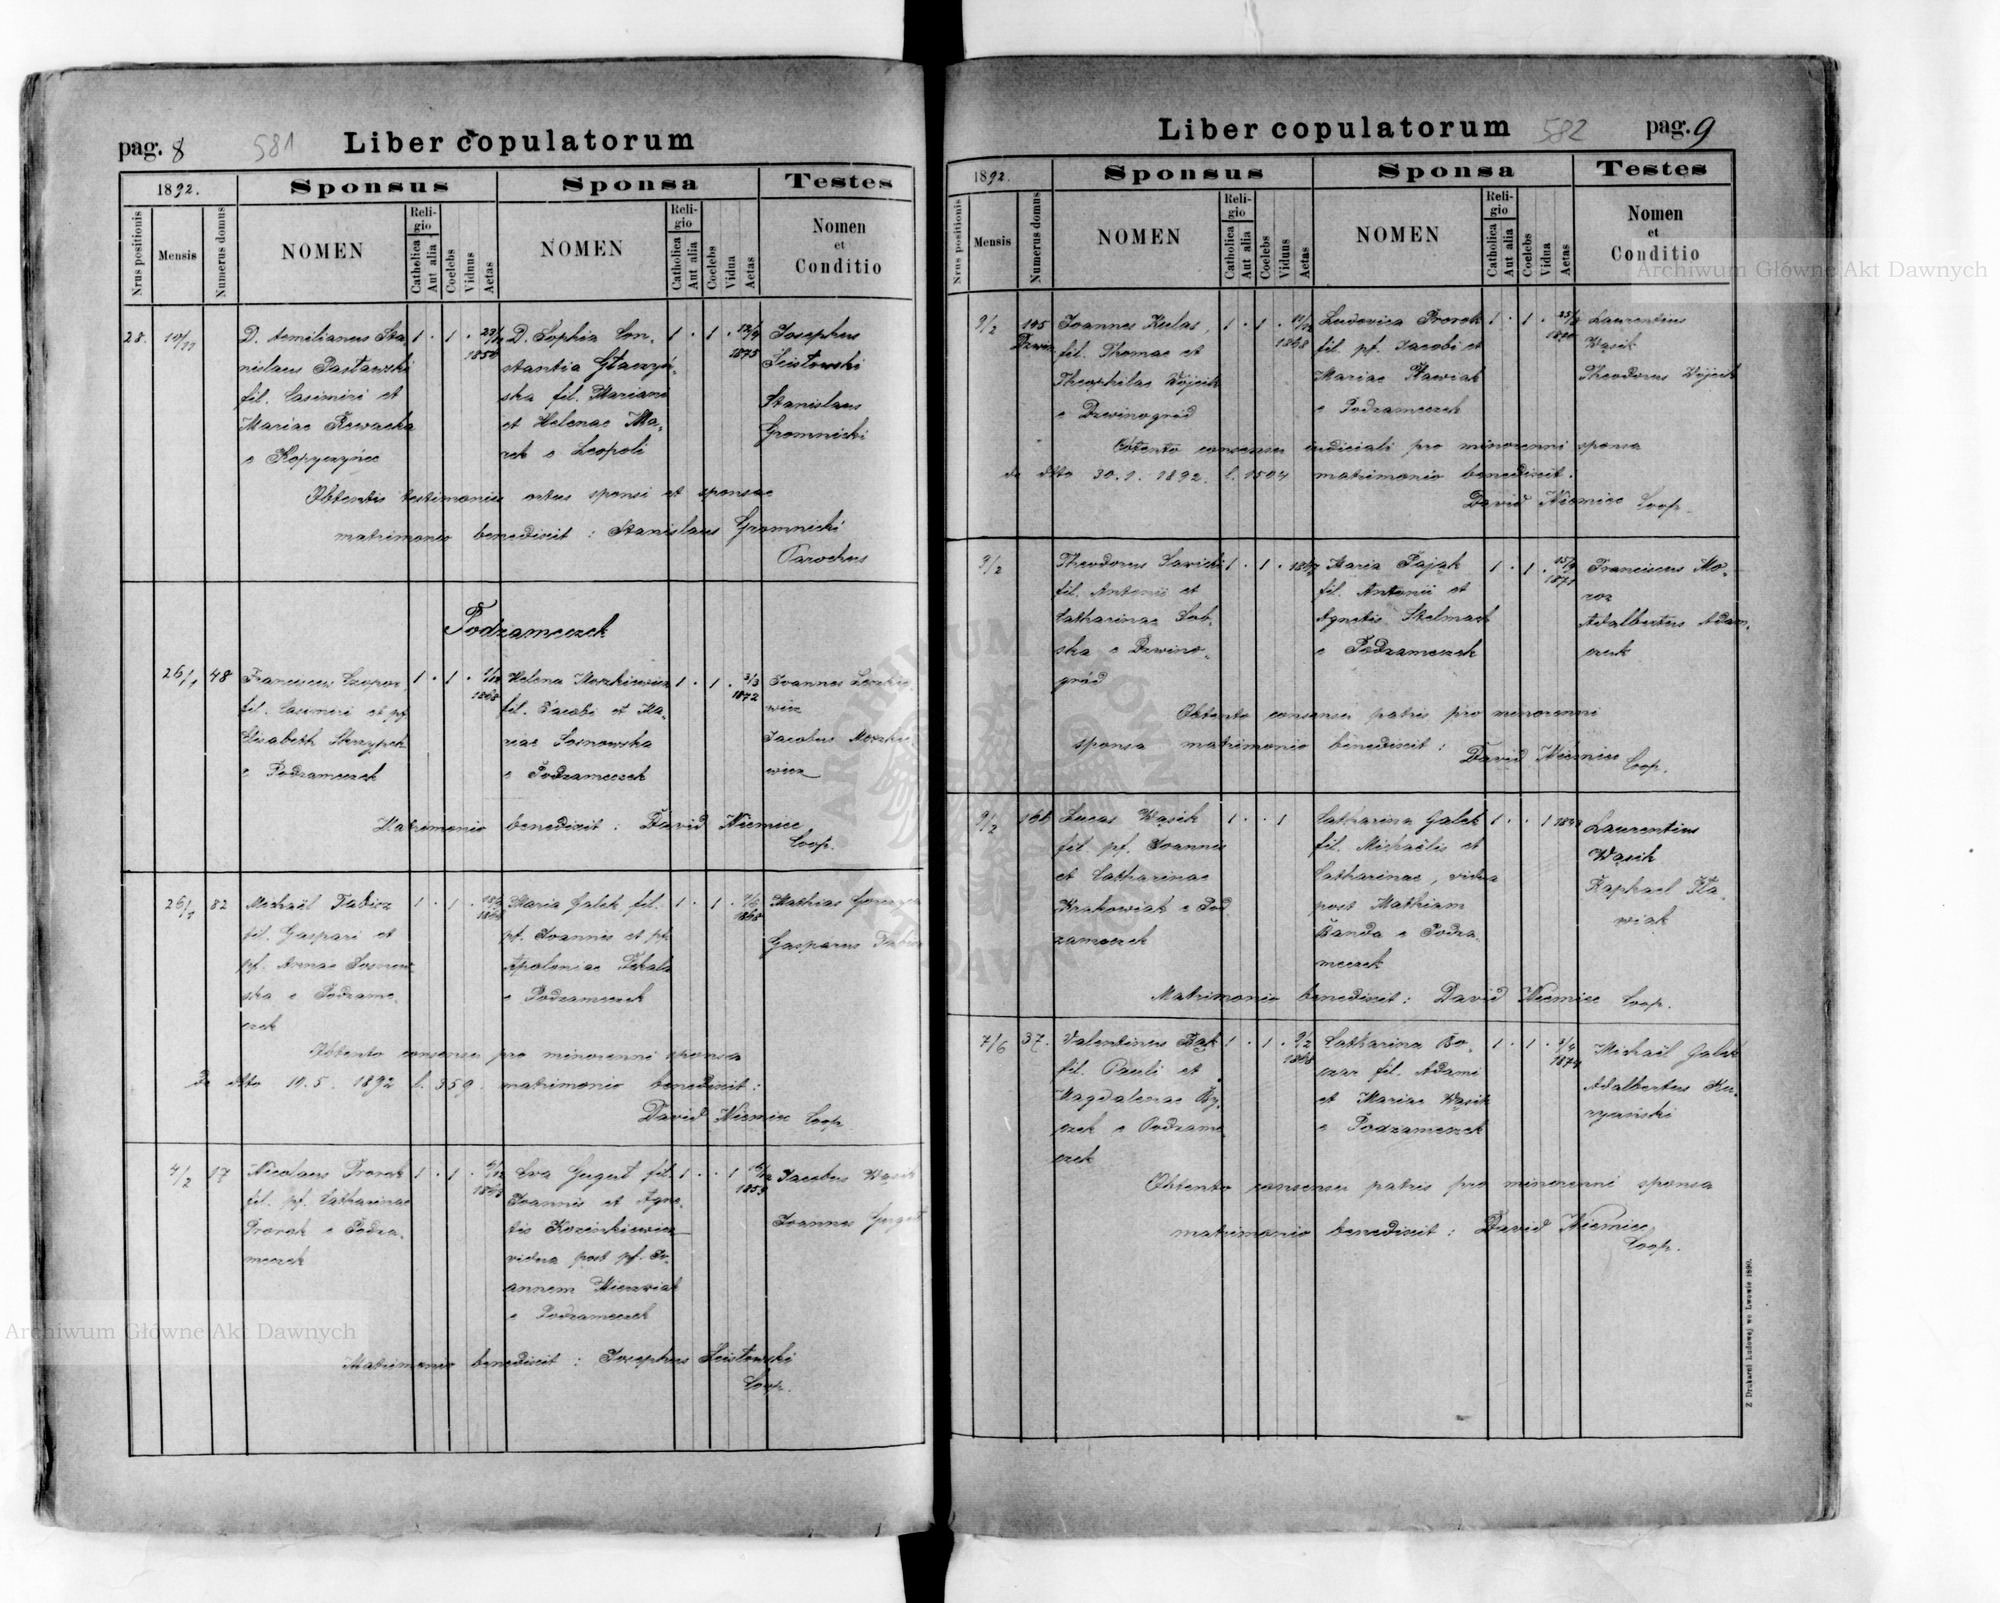 pag. 8 581 Liber copulatorum
1892.
Sponsus
Sponsa
Testes
Nrus positionis
Mensis
Numerus domus
NOMEN
Religio
Catholica
Aut alia
Coelebs
Viduus
Aetas
NOMEN
Religio
Catholica
Aut alia
Coelebs
Vidua
Aetas
Nomen
et
Conditio
28.
10/11
D. Aemilianus Sta
nislaus Pastawski
fil. Casimiri et
Mariae
e Kopyczyńce
1 . 1 .
1850
D. Sophia Con-
stantia
ska fil. Mariani
et Helenae Ma-
rek e Leopoli
1 . 1 .
12/9
1875
Josephus
Scistowski
Stanislaus
Gromnicki
Obtentis testimoniis ortus sponsi et sponsae
matrimonio benedixit : Stanislaus Gromnicki
Parochus
Podzameczek
26/1
48
Franciscus Czopor,
fil. Casimiri et pf.
Elisabeth Skrzypek
e Podzameczek
1 . 1 .
1868
Helena Moszkiewicz
fil. Jacobi et Ma-
riae Sosnowska
e Podzameczek
1 . 1 .
3/3
1872
Joannes
wicz
Jacobus Moszkie
wicz
Matrimonio benedixit : David Niemiec
Coop.
26/1
82
Michaël Fabisz
fil. Gaspari et
pf. Annae Sosnow
ska e Podzame-
czek
1 . 1 .
Maria Galek fil.
pf. Joannis et pf.
Apoloniae
e Podzameczek
1 . 1 .
Mathias
Gasparus Fabisz
Obtento consensu pro minorenni sponsa
de dtto 10.5. 1892 l. 359. matrimonio benedixit :
David Niemiec Coop.
4/2
17
Nicolaus Prorok
fil. pf. Catharinae
Prorok e Podza-
meczek
1 . 1 .
Eva Gergert fil.
Joannis et Agne-
tis Kozinkiewicz
vidua post pf. Jo-
annem
e Podzameczek
1 . . 1
1859
Jacobus Wąsik
Joannes Gergert
Matrimonio benedixit : Josephus Scistowski
Coop.
Liber copulatorum 582 pag. 9
1892.
Sponsus
Sponsa
Testes
Nrus positionis
Mensis
Numerus domus
NOMEN
Religio
Catholica
Aut alia
Coelebs
Viduus
Aetas
NOMEN
Religio
Catholica
Aut alia
Coelebs
Vidua
Aetas
Nomen
et
Conditio
9/2
145
Joannes Kulas,
fil. Thomae et
Theophilae Wójcik
e Dzwinogród
1 . 1 .
1868
Ludovica Prorok
fil. pf. Jacobi et
Mariae Pławiak
e Podzameczek
1 . 1 .
Laurentius
Wąsik
Theodorus Wójcik
Obtento consensu iudiciali pro minorenni sponsa
de dtto 30.1. 1892. l. 1504 matrimonio benedixit :
David Niemiec Coop.
9/2
Theodorus Sawicki
fil. Antonii et
Catharinae Sob-
ska e Dzwino-
gród
1 . 1 .
Maria Pająk
fil. Antonii et
Agnetis Stelmach
e Podzameczek
1 . 1 .
15/9
1871
Franciscus Mo-
roz
Adalbertus Adam-
czuk
Obtento consensu patris pro minorenni
sponsa matrimonio benedixit :
David Niemiec Coop.
9/2
Lucas Wąsik
fil. pf. Joannis
et Catharinae
Krakowiak e Pod
zameczek
1 . . 1
Catharina Galek
fil. Michaëlis et
Catharinae, vidua
post Mathiam
Banda e Podza-
meczek
1 . . 1
Laurentius
Wąsik
Raphael Pła-
wiak
Matrimonio benedixit : David Niemiec Coop.
7/6
37.
Valentinus Bąk
fil. Pauli et
Magdalenae By-
czek e Podzame
czek
1 . 1 .
9/2
1868
Catharina Bo-
czar fil. Adami
et Mariae Wąsik
e Podzameczek
1 . 1 .
3/4
1874
Michaël Galek
Adalbertus Ku-
ryański
Obtento consensu patris pro minorenni sponsa
matrimonio benedixit : David Niemiec
Coop.
Z Drukarni Ludowej we Lwowie 1890.
Archiwum Główne Akt Dawnych
Archiwum Główne Akt Dawnych